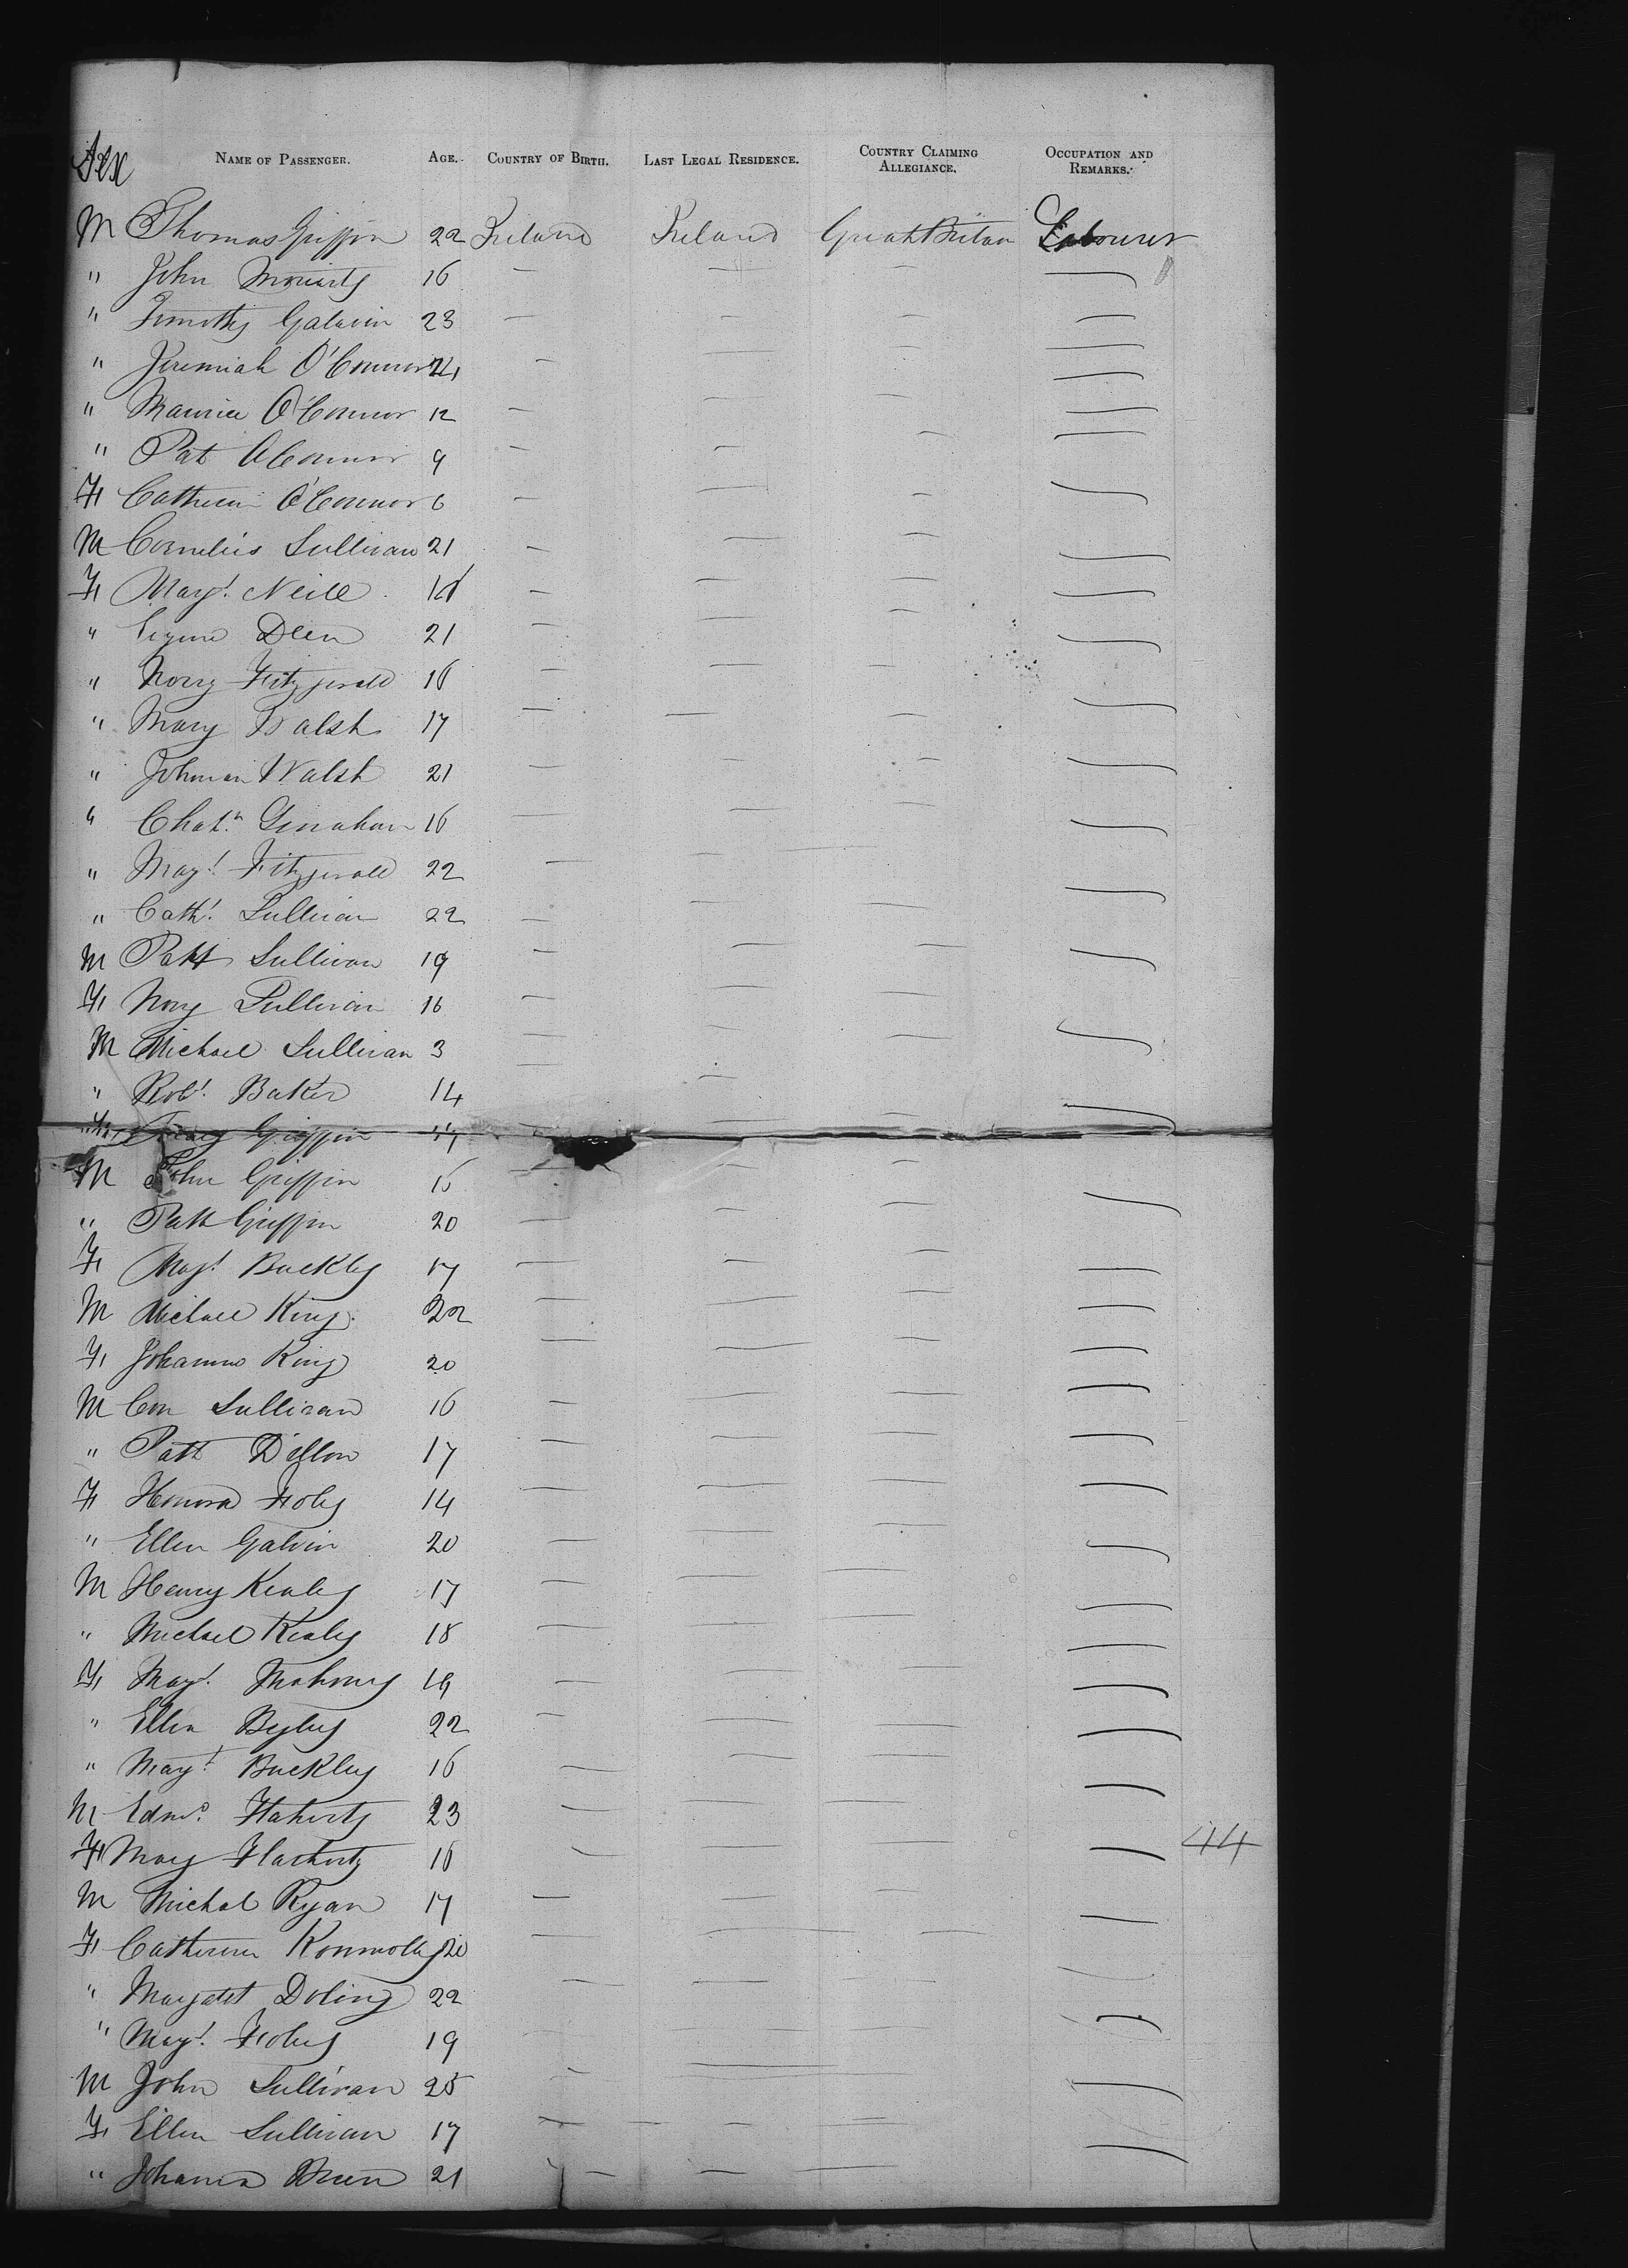 Sex NAME OF PASSENGER. AGE. COUNTRY OF BIRTH. LAST LEGAL RESIDENCE. COUNTRY CLAIMING ALLEGIANCE. OCCUPATION AND REMARKS.
M Thomas Griffin 22 Ireland Ireland Great Britan Labourer
" John Moriarty 16 — — — —
" Timothy Galavin 23 — — — —
" Jeremiah O'Connor — — — —
" Maurice O'Connor 12 — — — —
" Pat O'Connor 9 — — — —
F Cathrein O'Connor 6 — — — —
M Cornelius Sullivan 21 — — — —
F Marg't Neill — — — —
" Deen 21 — — — —
" Nory Fitzjerald 16 — — — —
" Mary Walsh 17 — — — —
" Johanan Walsh 21 — — — —
" 16 — — — —
" Mag't Fitzjerald 22 — — — —
" Cath' Sullivan 22 — — — —
M Patt Sullivan 19 — — — —
F Nory Sullivan 16 — — — —
M Michael Sullivan 3 — — — —
" Rob't Baker 14 — — — —
F Griffin — — — —
M John Griffin 16 — — — —
" Patt Griffin 20 — — — —
F Mag't Buckley 17 — — — —
M Michael King 22 — — — —
F Johanna King 20 — — — —
M Con Sullivan 16 — — — —
" Patt Dillon 17 — — — —
F Honora Foley 14 — — — —
" Ellen Galvin 20 — — — —
M Henry Kealey 17 — — — —
" Michael Kealey 18 — — — —
F Mag't Mahoney 19 — — — —
" Ellen Begley 22 — — — —
" Mag't Buckley 16 — — — —
M Edm'd Flaherty 23 — — — —
F Mary Flaherty 16 — — — — 44
M Michal Ryan 17 — — — —
F Catherine 20 — — — —
" Margatet Doling 22 — — — —
" Mag't Foley 19 — — — —
M John Sullivan 25 — — — —
F Ellen Sullivan 17 — — — —
" Johanna Breen 21 — — —